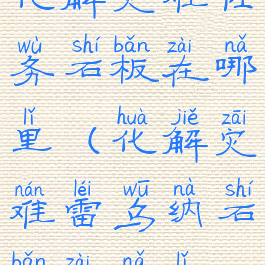 wù shí bǎn zài nǎ
务石板在哪
lǐ huà jiě zāi
里（化解灾
nán léi wū nà shí
难雷乌纳石
bǎn zài nǎ lǐ